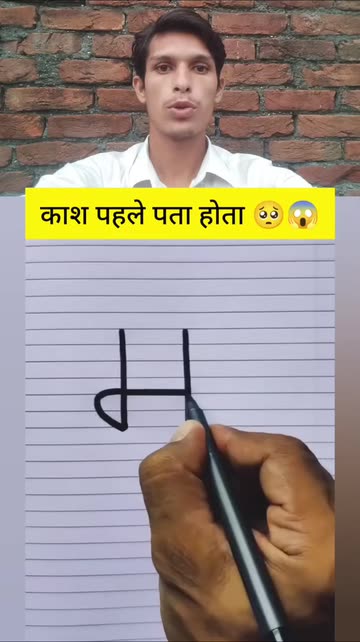 काश पहले पता होता 🥺😱
म